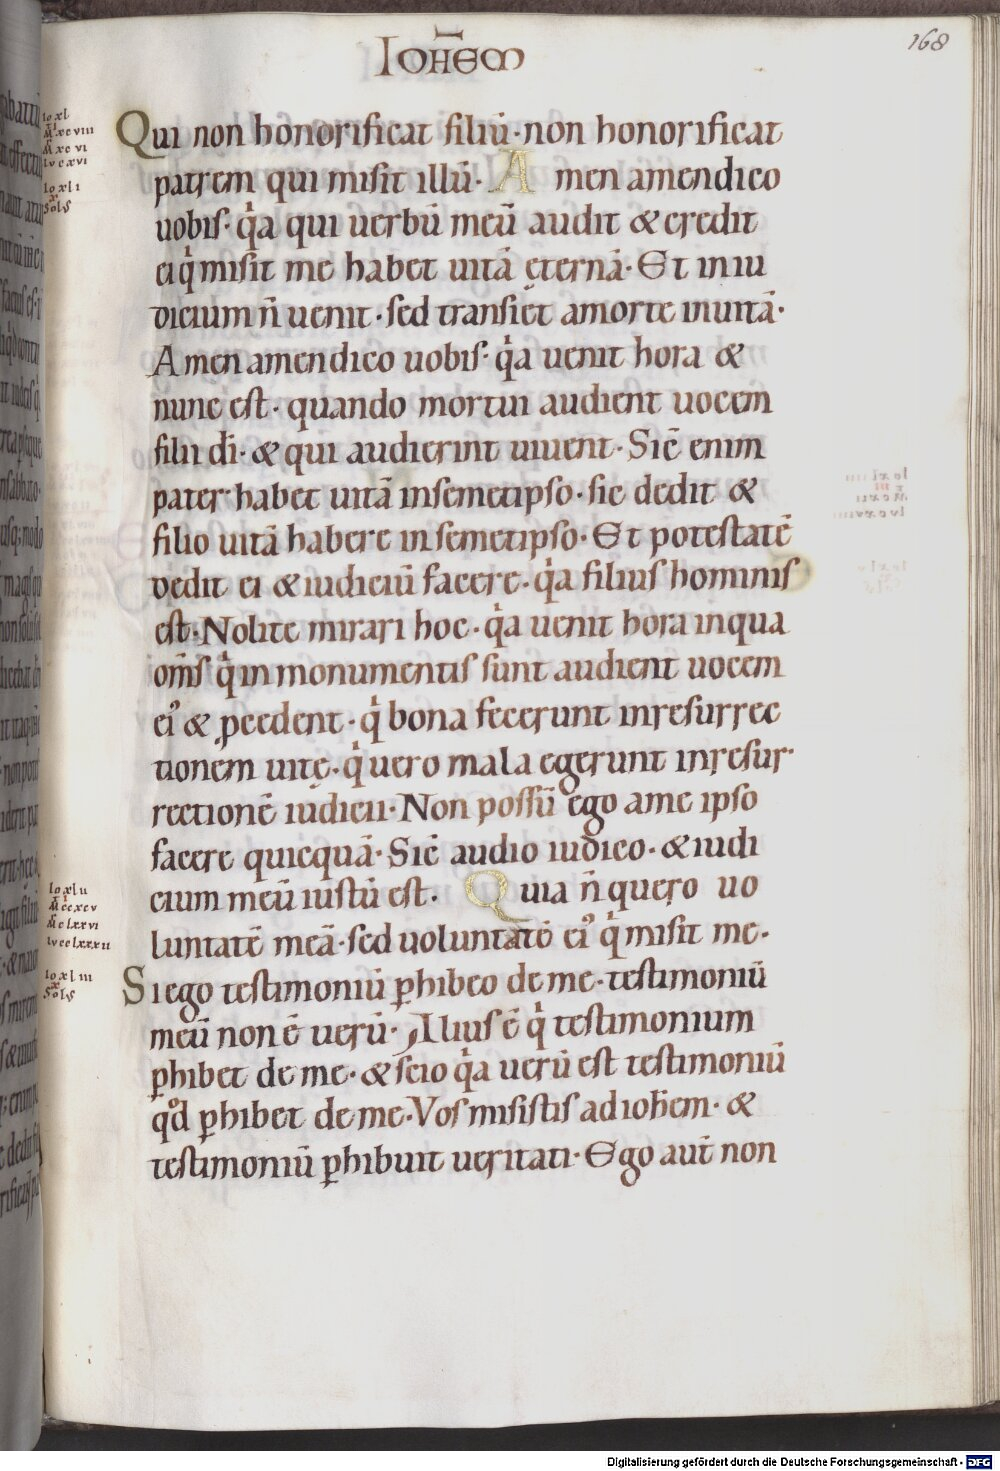 IOHEM
168
Qui non honorificat filiū· non honorificat
patrem qui misit illū· Amen amen dico
uobis· qͥa qui uerbū meū audit & credit
ei qͥ misit me habet uitā ęternā· Et in iu
dicium n̄ uenit· sed transiet a morte in uitā·
Amen amen dico uobis· qͥa uenit hora &
nunc est· quando mortui audient uocem
filii dī· & qui audierint uiuent· Sic̄ enim
pater habet uitā in semetipso· sic dedit &
filio uitā habere in semetipso· Et potestatē
dedit ei & iudiciū facere· qͥa filius hominis
est· Nolite mirari hoc· qͥa uenit hora in qua
om̄s qͥ in monumentis sunt audient uocem
eiꝰ & ꝓcedent· qͥ bona fecerunt in resurrec
tionem uitę· qͥ uero mala egerunt in resur·
rectionē iudicii· Non possū ego a me ipso
facere quicquā· Sic̄ audio iudico· & iudi
cium meū iustū est· Quia n̄ quero uo
luntatē meā· sed uoluntatē eiꝰ qͥ misit me·
Si ego testimoniū ꝑhibeo de me· testimoniū
meū non ē uerū· Alius ē qͥ testimonium
ꝑhibet de me· & scio qͥa uerū est testimoniū
qͦd ꝑhibet de me· Vos misistis ad ioħem· &
testimoniū ꝑhibuit ueritati· Ego aut̄ non
Io xl
M̄ xcviii
M̄ xcvi
lv cxvi
Io xli
x
Sols
Io xlii
M̄ clxxvi
lv cclxxxii
Io xliii
x
Sols
Digitalisierung gefördert durch die Deutsche Forschungsgemeinschaft - DFG